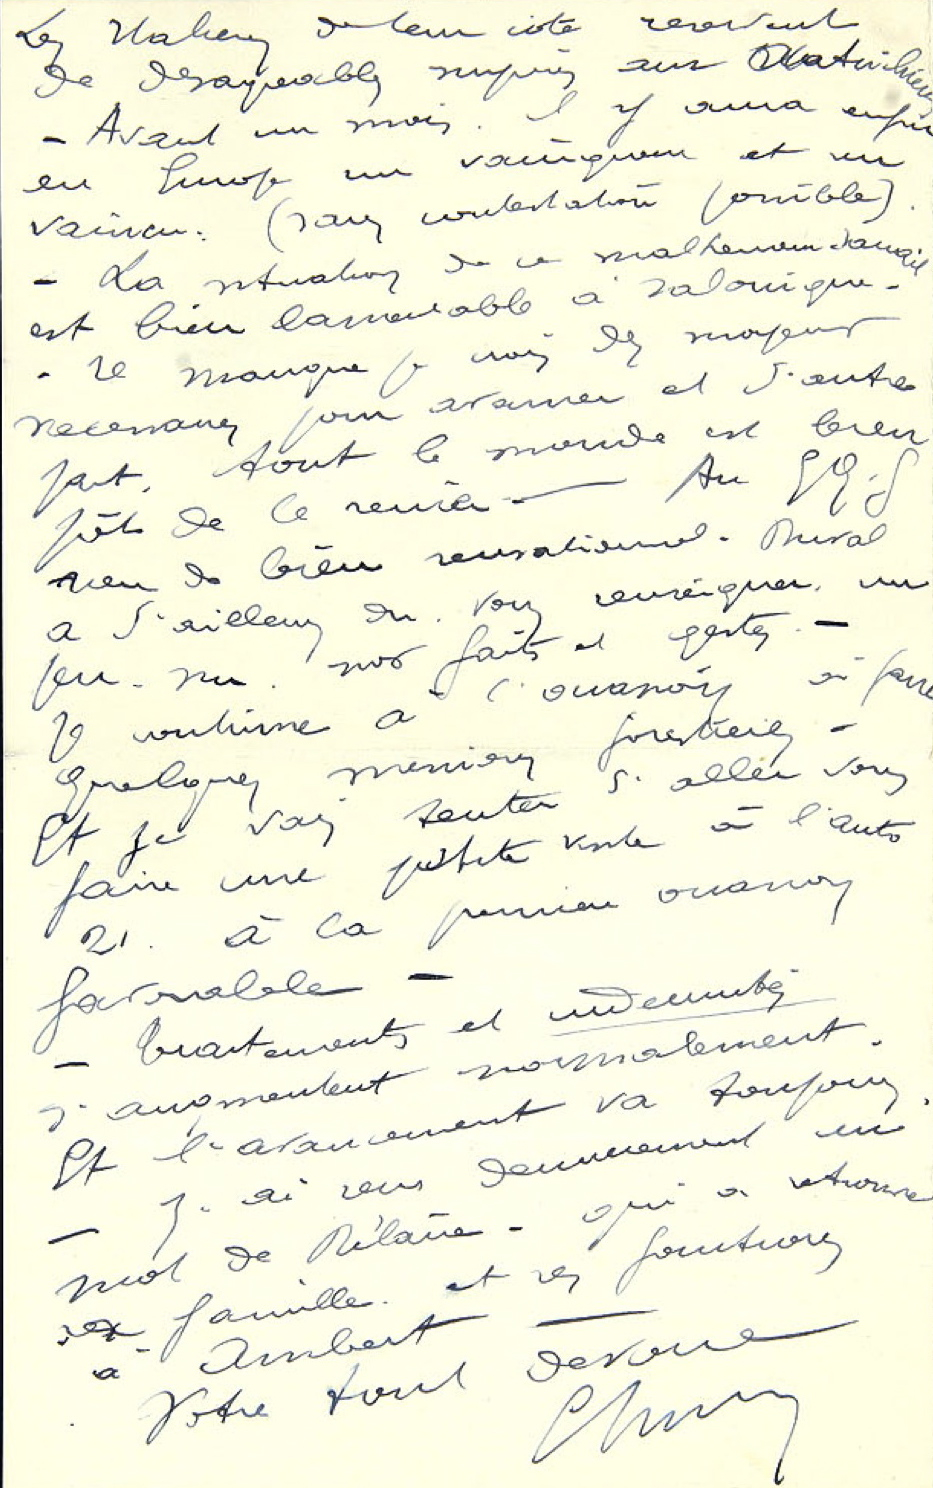 Les Italiens de leur côté réservent
de désagréables surprises aux Autrichiens
- Avant un mois. il y aura enfin
en Europe un vainqueur et un
vaincu. (sans contestation possible).
- La situation de ce malheureux Sarrail
est bien lamentable à Salonique -
- Il manque je crois des moyens
nécessaires pour avancer et d'autre
part, tout le monde est bien
près de le renier - Au GQG
rien de bien sensationnel. Duval
a d'ailleurs dû vous renseigner un
peu sur nos faits et gestes. -
Je continue à l'occasion à faire
quelques missions forestières -
Et je vais tenter d'aller vous
faire une petite visite à l'auto
21. à la première occasion
favorable -
- Traitements et indemnités
s'augmentent normalement.
Et l'avancement va toujours.
- J'ai reçu dernièrement un
mot de Hilaire - qui a retrouvé
sa famille et ses fonctions
à Ambert
Votre tout dévoué